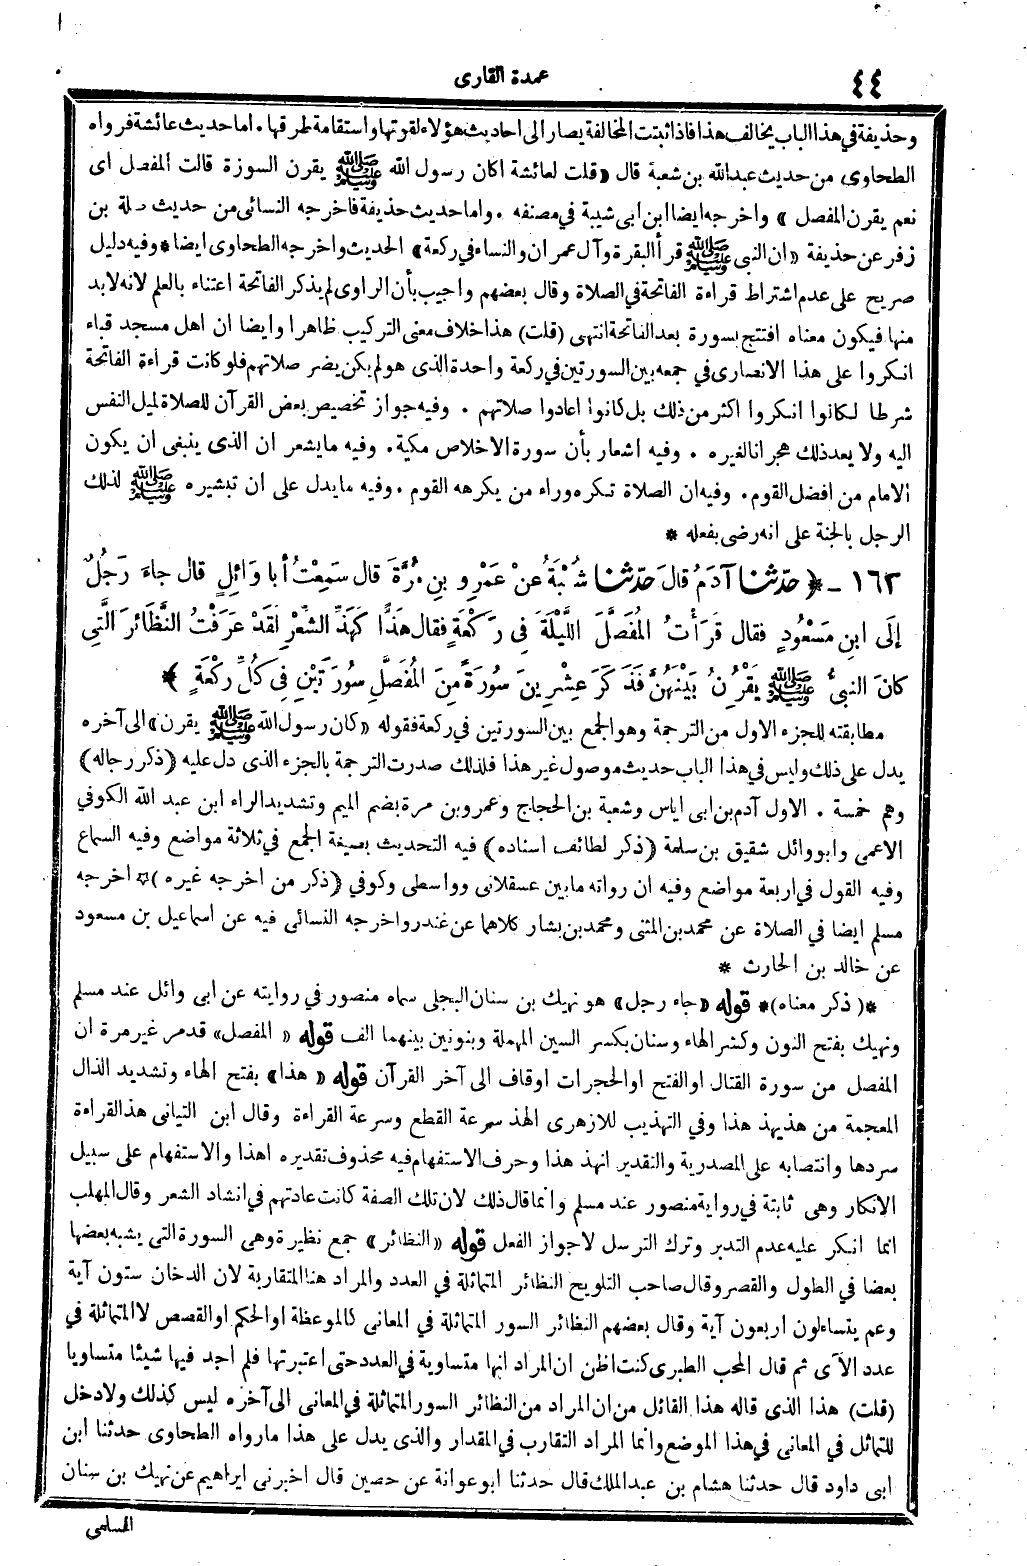 ٤٤
عمدة القارى
وحذيفة في هذا الباب يخالف هذا فاذا ثبتت المخالفة يصار الى احاديث هؤلاء لقوتها واستقامة طرقها . اما حديث عائشة فرواه
الطحاوى من حديث عبد الله بن شعبة قال « قلت لعائشة اكان رسول الله ﷺ يقرن السورة قالت المفصل اى
نعم يقرن المفصل » واخرجه ايضا ابن ابى شيبة في مصنفه . واما حديث حذيفة فاخرجه النسائى من حديث صلة بن
زفر عن حذيفة « ان النبى ﷺ قرأ البقرة وآل عمران والنساء في ركعة » الحديث واخرجه الطحاوى ايضا * وفيه دليل
صريح على عدم اشتراط قراءة الفاتحة في الصلاة وقال بعضهم واجيب بأن الراوى لم يذكر الفاتحة اعتناء بالعلم لانه لابد
منها فيكون معناه افتتح بسورة بعد الفاتحة انتهى (قلت) هذا خلاف معنى التركيب ظاهرا وايضا ان اهل مسجد قباء
انكروا على هذا الانصارى في جمعه بين السورتين في ركعة واحدة الذى هو لم يكن يضر صلاتهم فلو كانت قراءة الفاتحة
شرطا لكانوا انكروا اكثر من ذلك بل كانوا اعادوا صلاتهم . وفيه جواز تخصيص بعض القرآن للصلاة لميل النفس
اليه ولا يعد ذلك هجرانا لغيره . وفيه اشعار بأن سورة الاخلاص مكية . وفيه مايشعر ان الذى ينبغى ان يكون
الامام من افضل القوم . وفيه ان الصلاة تكره وراء من يكرهه القوم . وفيه مايدل على ان تبشيره ﷺ لذلك
الرجل بالجنة على انه رضى بفعله *
١٦٢ ـ ﴿ حَدَّثَنَا آدَمُ قَالَ حَدَّثَنَا شُعْبَةُ عَنْ عَمْرِو بنِ مُرَّةَ قال سَمِعْتُ أبا وَائِلٍ قال جاءَ رَجُلٌ
إلَى ابنِ مَسْعُودٍ فقال قَرَأْتُ المُفَصَّلَ اللَّيْلَةَ فِى رَكْعَةٍ فقال هَذًّا كَهَذِّ الشِّعْرِ لَقَدْ عَرَفْتُ النَّظَائِرَ الَّتِي
كانَ النبىُّ ﷺ يَقْرُنُ بَيْنَهُنَّ فَذَكَرَ عِشْرِينَ سُورَةً مِنَ المُفَصَّلِ سُورَتَيْنِ فِى كُلِّ رَكْعَةٍ ﴾
مطابقته للجزء الاول من الترجمة وهو الجمع بين السورتين في ركعة فقوله « كان رسول الله ﷺ يقرن » الى آخره
يدل على ذلك وليس في هذا الباب حديث موصول غير هذا فلذلك صدرت الترجمة بالجزء الذى دل عليه (ذكر رجاله)
وهم خمسة . الاول آدم بن ابى اياس وشعبة بن الحجاج وعمرو بن مرة بضم الميم وتشديد الراء ابن عبد الله الكوفي
الاعمى وابو وائل شقيق بن سلمة (ذكر لطائف اسناده) فيه التحديث بصيغة الجمع في ثلاثة مواضع وفيه السماع
وفيه القول في اربعة مواضع وفيه ان رواته مابين عسقلانى وواسطى وكوفي (ذكر من اخرجه غيره) * اخرجه
مسلم ايضا في الصلاة عن محمد بن المثنى ومحمد بن بشار كلاهما عن غندر واخرجه النسائى فيه عن اسماعيل بن مسعود
عن خالد بن الحارث *
*( ذكر معناه)* قوله « جاء رجل » هو نهيك بن سنان البجلى سماه منصور في روايته عن ابى وائل عند مسلم
ونهيك بفتح النون وكسر الهاء وسنان بكسر السين المهملة وبنونين بينهما الف قوله « المفصل » قد مر غير مرة ان
المفصل من سورة القتال او الفتح او الحجرات او قاف الى آخر القرآن قوله « هذا » بفتح الهاء وتشديد الذال
المعجمة من هذ يهذ هذا وفي التهذيب للازهرى الهذ سرعة القطع وسرعة القراءة وقال ابن التيانى هذ القراءة
سردها وانتصابه على المصدرية والتقدير اتهذ هذا وحرف الاستفهام فيه محذوف تقديره اهذا والاستفهام على سبيل
الانكار وهى ثابتة في رواية منصور عند مسلم وانما قال ذلك لان تلك الصفة كانت عادتهم في انشاد الشعر وقال المهلب
انما انكر عليه عدم التدبر وترك الترسل لا جواز الفعل قوله « النظائر » جمع نظيرة وهى السورة التى يشبه بعضها
بعضا في الطول والقصر وقال صاحب التلويح النظائر المتماثلة في العدد والمراد هنا المتقاربة لان الدخان ستون آية
وعم يتساءلون اربعون آية وقال بعضهم النظائر السور المتماثلة في المعانى كالموعظة او الحكم او القصص لا المتماثلة في
عدد الآى ثم قال المحب الطبرى كنت اظن ان المراد انها متساوية في العدد حتى اعتبرتها فلم اجد فيها شيئا متساويا
(قلت) هذا الذى قاله هذا القائل من ان المراد من النظائر السور المتماثلة في المعانى الى آخره ليس كذلك ولا دخل
للتماثل في المعانى في هذا الموضع وانما المراد التقارب في المقدار والذى يدل على هذا مارواه الطحاوى حدثنا ابن
ابى داود قال حدثنا هشام بن عبد الملك قال حدثنا ابو عوانة عن حصين قال اخبرنى ابراهيم عن نهيك بن سنان
السلمى